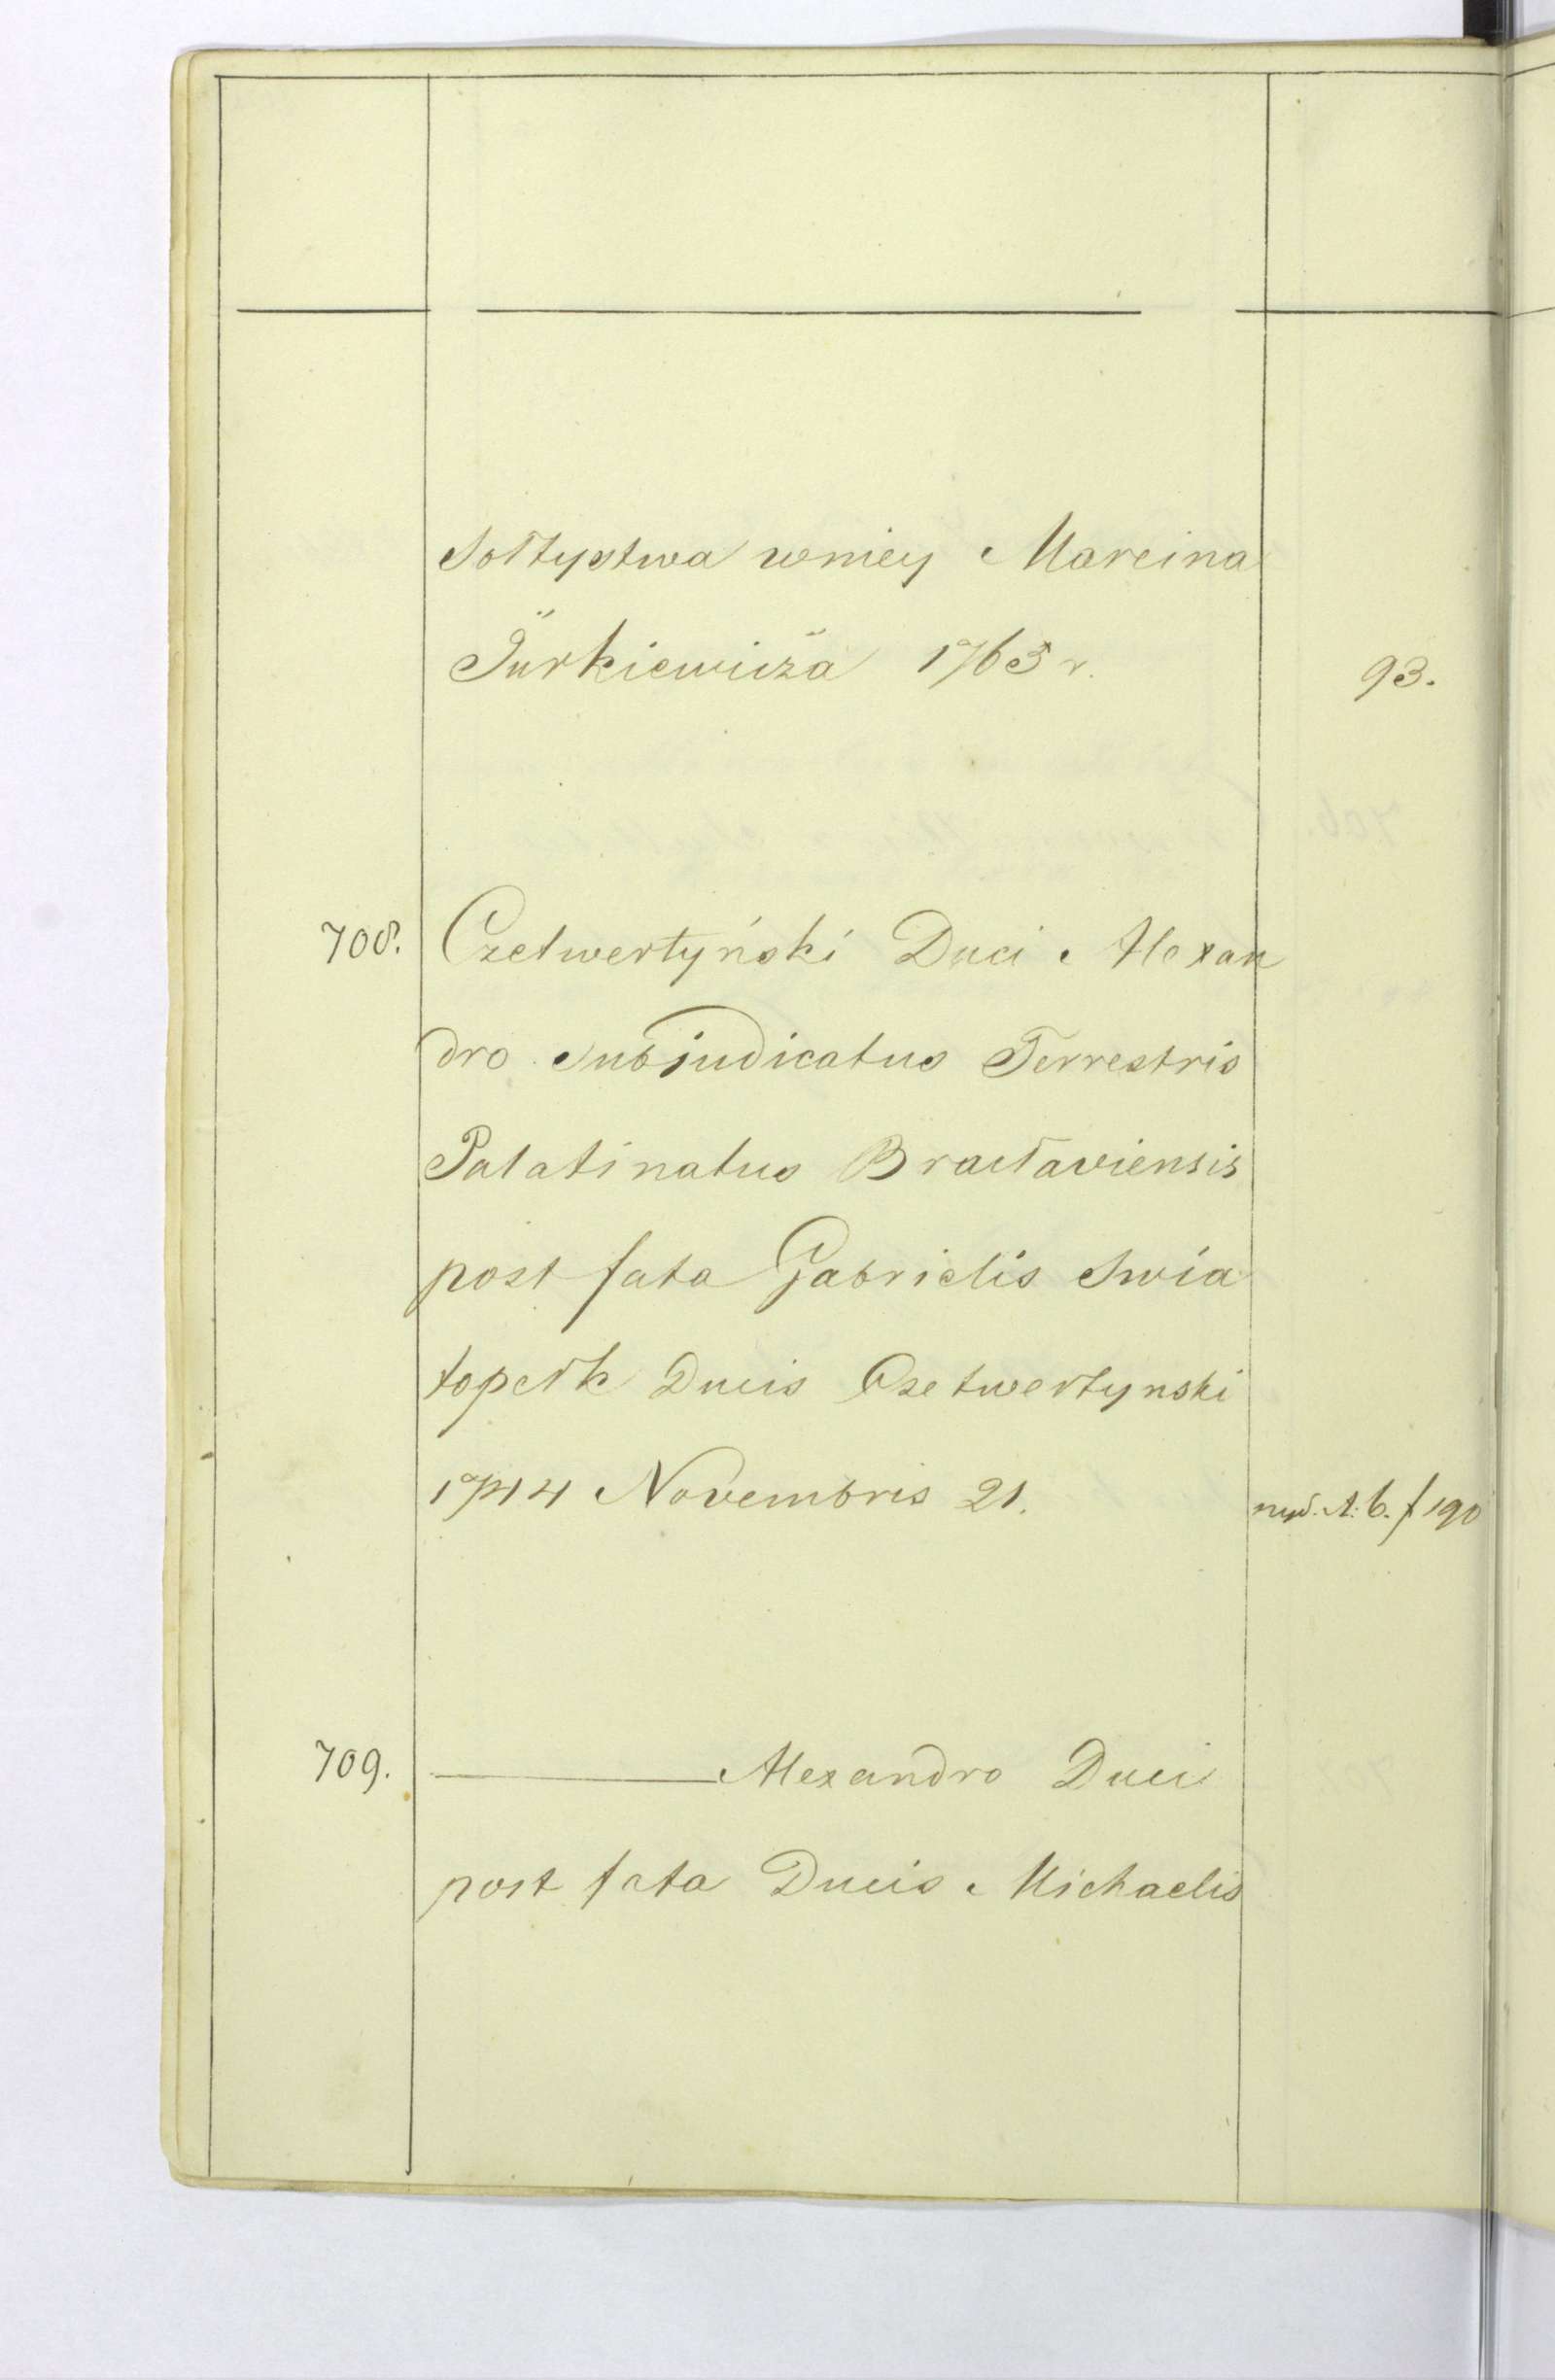 Sołtystwa wniey Marcina
Jurkiewicza 1763 r. 93.
708. Czetwertyński Duci Alexan
dro Subjudicatus Terrestris
Palatinatus Bracłaviensis
post fata Gabrielis Swia
topełk Ducis Czetwertynski
1744 Novembris 21. f 190
709. ——— Alexandro Duci
post fata Ducis Michaelis